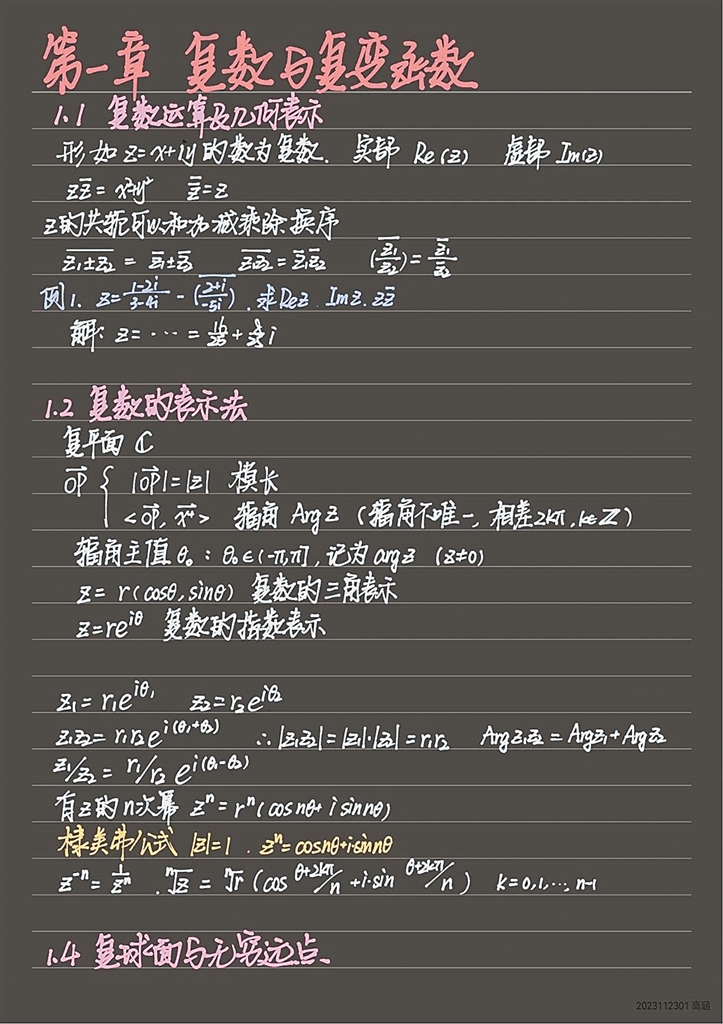 第一章 复数与复变函数
1.1 复数运算及几何表示
形如 z=x+iy 的数为复数. 实部 Re(z) 虚部 Im(z)
zz̅ = x²+y² z̿ = z
z的共轭可以和加减乘除换序
\overline{z₁±z₂} = z̅₁±z̅₂ \overline{z₁z₂} = z̅₁z̅₂ \overline{(z₁/z₂)} = z̅₁/z̅₂
例1. z = (1-2i)/(3-4i) - \overline{((2+i)/(-5i))}. 求Rez. Imz. zz̅
解: z = ··· = 16/25 + 8/25 i
1.2 复数的表示法
复平面 ℂ
OP→ { |OP→|=|z| 模长
<OP→, x⁺> 辐角 Arg z (辐角不唯一, 相差2kπ, k∈Z)
辐角主值 θ₀ : θ₀∈(-π,π], 记为 arg z (z≠0)
z = r(cosθ, sinθ) 复数的三角表示
z=re^{iθ} 复数的指数表示
z₁ = r₁e^{iθ₁} z₂ = r₂e^{iθ₂}
z₁z₂ = r₁r₂e^{i(θ₁+θ₂)} ∴|z₁z₂| = |z₁|·|z₂| = r₁r₂ Argz₁z₂ = Argz₁+Argz₂
z₁/z₂ = r₁/r₂ e^{i(θ₁-θ₂)}
有z的n次幂 zⁿ = rⁿ(cosnθ+ i sinnθ)
棣美弗公式 |z|=1. zⁿ = cosnθ+i·sinnθ
z⁻ⁿ = 1/zⁿ . ⁿ√z = ⁿ√r (cos (θ+2kπ)/n + i·sin (θ+2kπ)/n) k=0,1,…, n-1
1.4 复球面与无穷远点.
2023112301 高涵